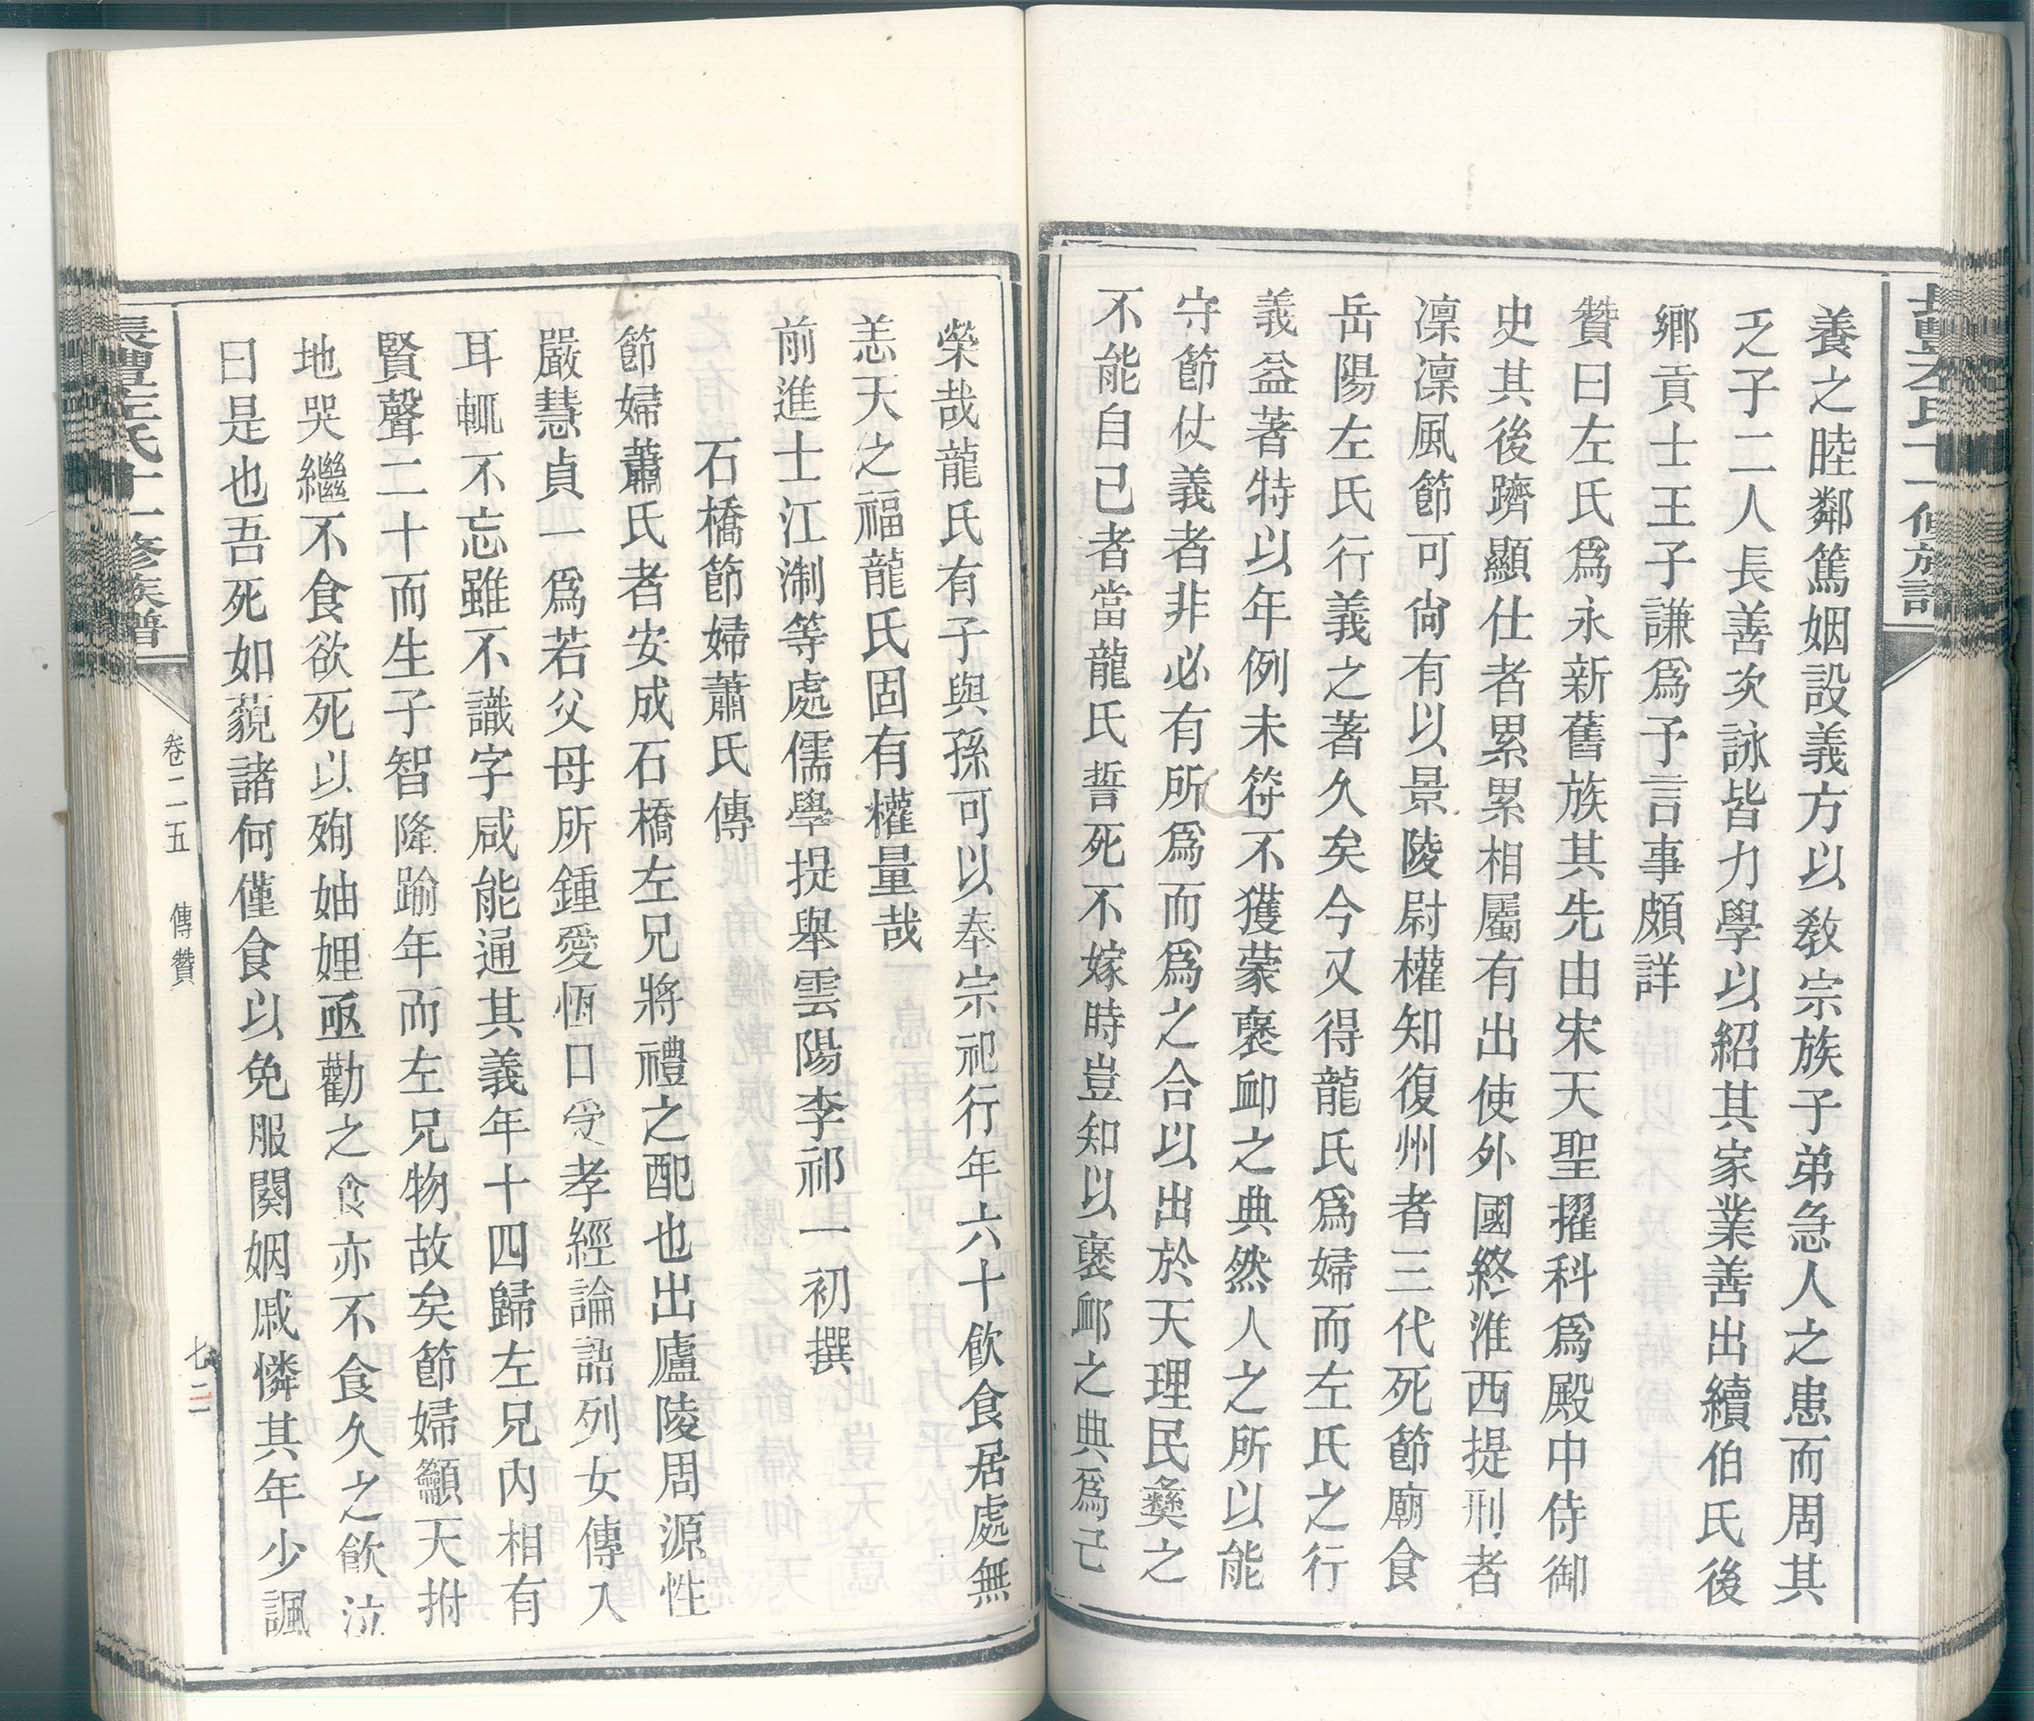 養之睦鄰篤姻設義方以敎宗族子弟急人之患而周其
乏子二人長善次詠皆力學以紹其家業善出續伯氏後
鄉貢士王子謙爲予言事頗詳
贊曰左氏爲永新舊族其先由宋天聖擢科爲殿中侍御
史其後躋顯仕者累累相屬有出使外國終淮西提刑者
凜凜風節可尙有以景陵尉權知復州者三代死節廟食
岳陽左氏行義之著久矣今又得龍氏爲婦而左氏之行
義益著特以年例未符不獲蒙褒卹之典然人之所以能
守節仗義者非必有所爲而爲之合以出於天理民彝之
不能自已者當龍氏誓死不嫁時豈知以褒卹之典爲己
榮哉龍氏有子與孫可以奉宗祀行年六十飮食居處無
恙天之福龍氏固有權量哉
前進士江淛等處儒學提舉雲陽李祁一初撰
石橋節婦蕭氏傳
節婦蕭氏者安成石橋左兄將禮之配也出廬陵周源性
嚴慧貞一爲若父母所鍾愛恆口受孝經論語列女傳入
耳輒不忘雖不識字咸能通其義年十四歸左兄內相有
賢聲二十而生子智隆踰年而左兄物故矣節婦籲天拊
地哭繼不食欲死以殉妯娌亟勸之食亦不食久之飮泣
曰是也吾死如藐諸何僅食以免服闋姻戚憐其年少諷
長澧左氏十一修族譜
卷二五
傳贊
七二